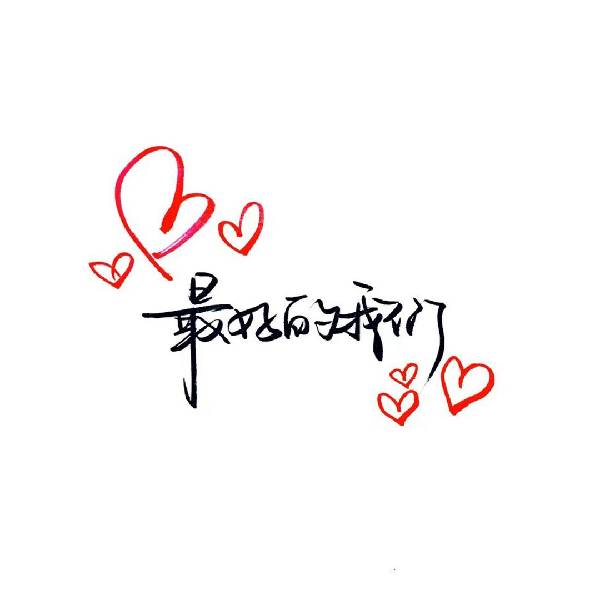 最好的我们